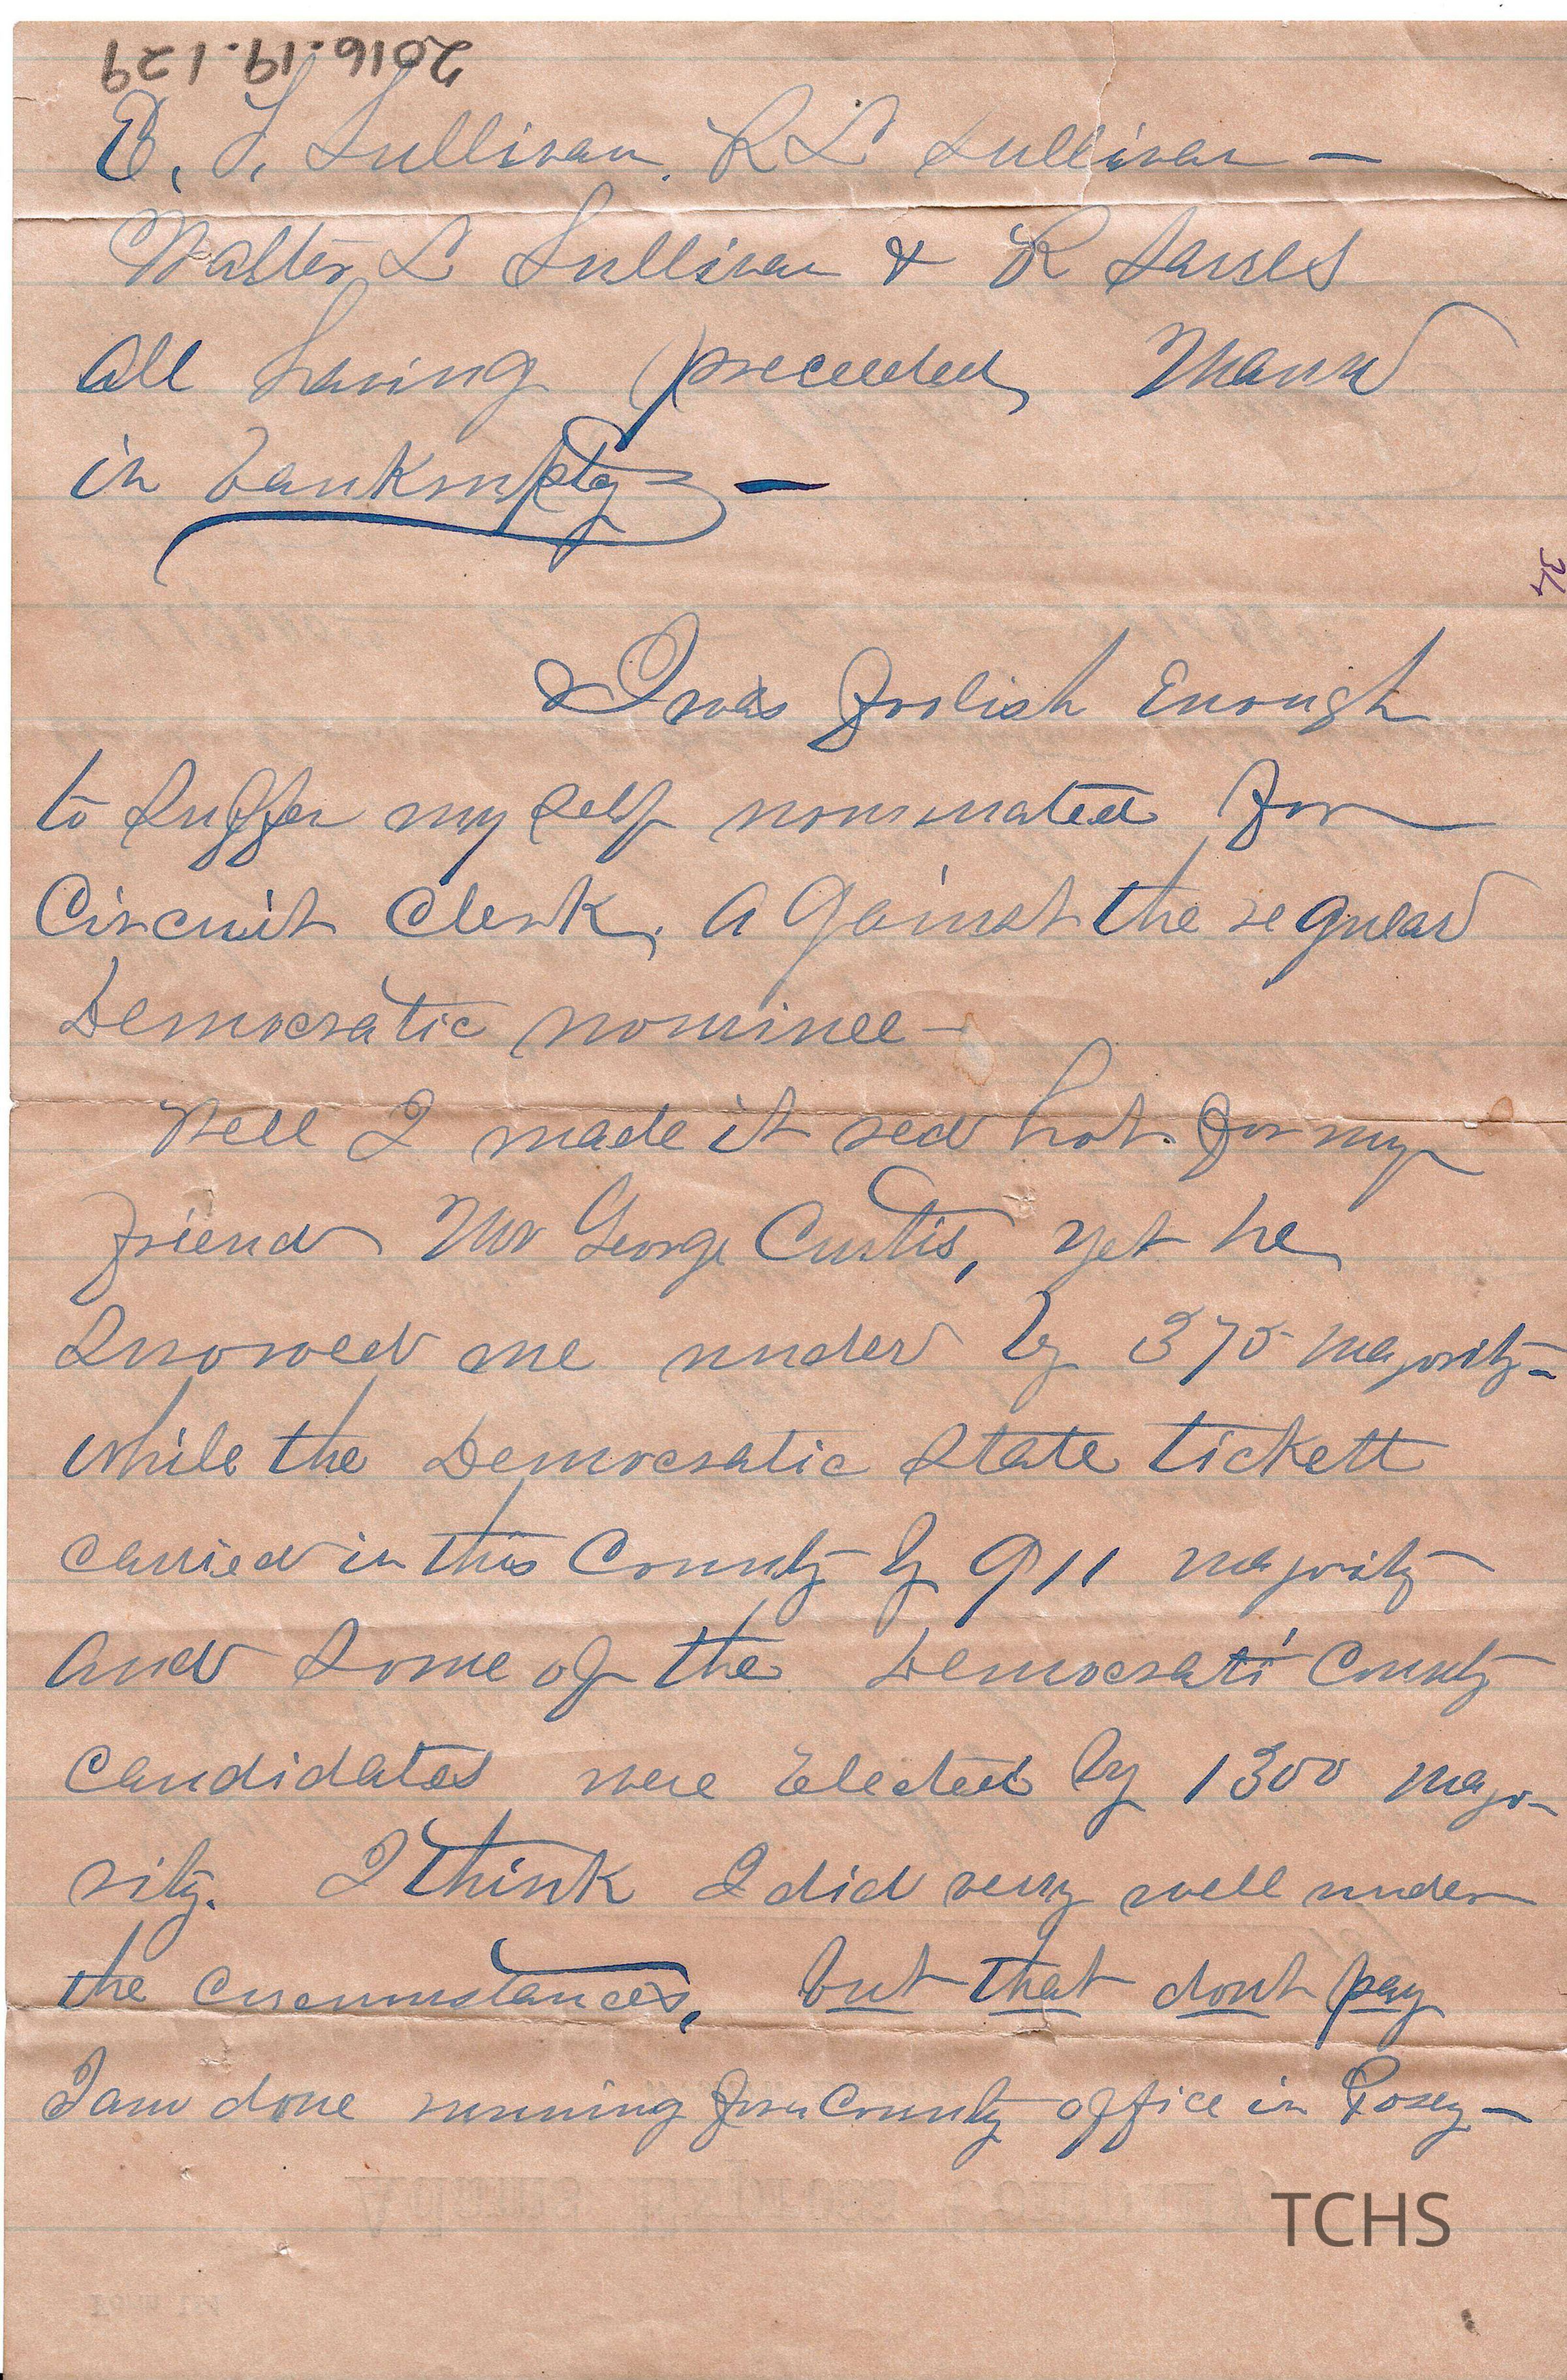 2016.19.129
E. T. Sullivan. R L Sullivan —
Walter L Sullivan & R
all having preceeded Mann
in bankruptcy —
34
I was foolish Enough
to suffer my self nominated for
Circuit Clerk, against the regular
Democratic nominee —
Well I made it red hot for my
friend Mr George Curtis, yet he
snowed me under by 375 majority —
while the Democratic state tickett
carried in this County by 911 majority
and some of the Democrati County
candidates were Elected by 1300 majo-
rity. I think I did very well under
the circumstances, but that dont pay
I am done running for County office in Posey —
TCHS